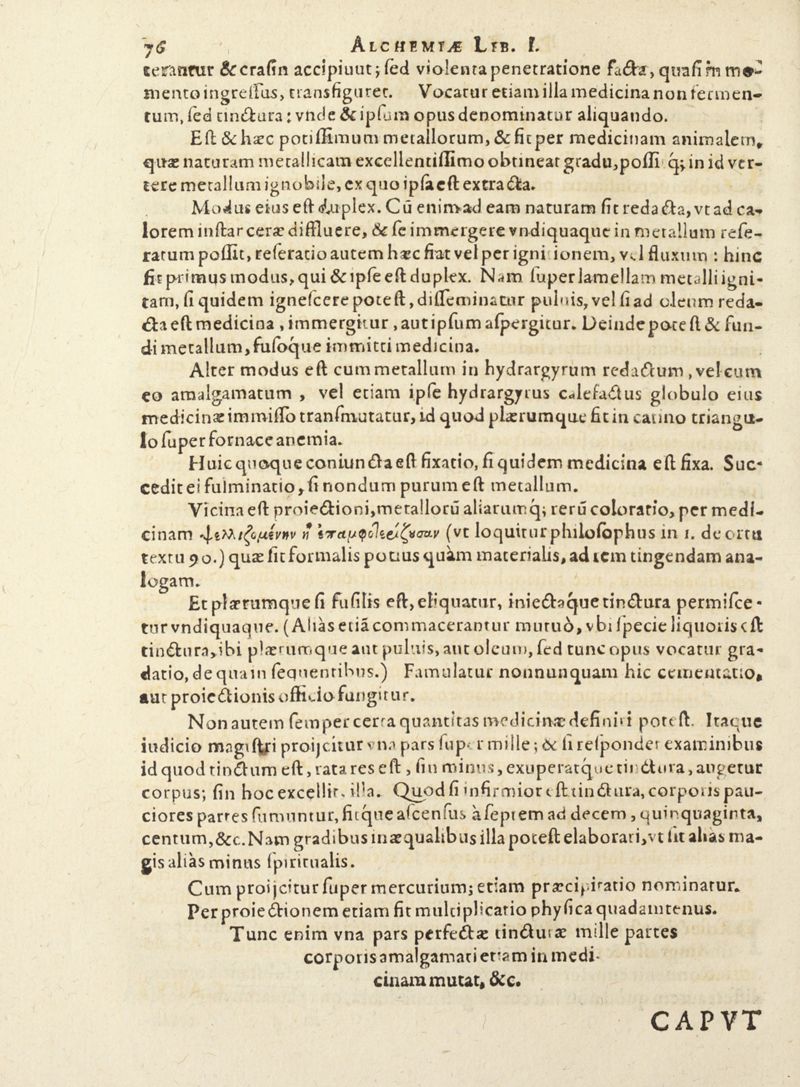 76 ALCHEMIÆ LIB. I.
terantur & crasin accipiunt; sed violenta penetratione facta, quasi in mo-
mento ingressus, transfiguret. Vocatur etiam illa medicina non fermen-
tum, sed tinctura: vnde & ipsum opus denominatur aliquando.
Est & hæc potissimum metallorum, & fit per medicinam animalem,
quæ naturam metallicam excellentissimo obtineat gradu, possitq; in id ver-
tere metallum ignobile, ex quo ipsa est extracta.
Modus eius est duplex. Cū enim ad eam naturam sit redacta, vt ad ca-
lorem instar ceræ diffluere, & se immergere vndiquaque in metallum rese-
ratum possit, reseratio autem hæc fiat vel per ignitionem, vel fluxum: hinc
fit primus modus, qui & ipse est duplex. Nam super lamellam metalli igni-
tam, si quidem ignescere potest, disseminatur puluis, vel si ad oleum reda-
cta est medicina, immergitur, aut ipsum aspergitur. Deinde potest & fun-
di metallum, fusoque immitti medicina.
Alter modus est cum metallum in hydrargyrum redactum, vel cum
eo amalgamatum, vel etiam ipse hydrargyrus calefactus globulo eius
medicinæ immisso transmutatur, id quod plærumque fit in catino triangu-
lo super fornace anemia.
Huic quoque coniuncta est fixatio, si quidem medicina est fixa. Suc-
cedit ei fulminatio, si nondum purum est metallum.
Vicina est proiectioni, metallorū aliarumq; rerū coloratio, per medi-
cinam (vt loquitur philosophus in 1. de ortu
textu 90.) quæ sit formalis potius quàm materialis, ad rem tingendam ana-
logam.
Et plærumque si fusilis est, eliquatur, iniectaque tinctura permisce-
tur vndiquaque. (Aliàs etiā commacerantur mutuò, vbi specie liquoris est
tinctura, ibi plærumque aut puluis, aut oleum, sed tunc opus vocatur gra-
datio, de qua in sequentibus.) Famulatur nonnunquam hic cementatio,
aut proiectionis officio fungitur.
Non autem semper certa quantitas medicinæ definiri potest. Itaque
iudicio magistri proijcitur vna pars super mille; & si respondet examinibus
id quod tinctum est, rata res est, sin minus, exuperatque tinctura, augetur
corpus; sin hoc excellit, illa. Quod si infirmior est tinctura, corporis pau-
ciores partes sumuntur, fitque ascensus à septem ad decem, quinquaginta,
centum, &c. Nam gradibus inæqualibus illa potest elaborari, vt sit aliàs ma-
gis aliàs minus spiritualis.
Cum proijcitur super mercurium; etiam præcipitatio nominatur.
Per proiectionem etiam fit multiplicatio physica quadamtenus.
Tunc enim vna pars perfectæ tincturæ mille partes
corporis amalgamati etiam in medi-
cinam mutat, &c.
CAPVT